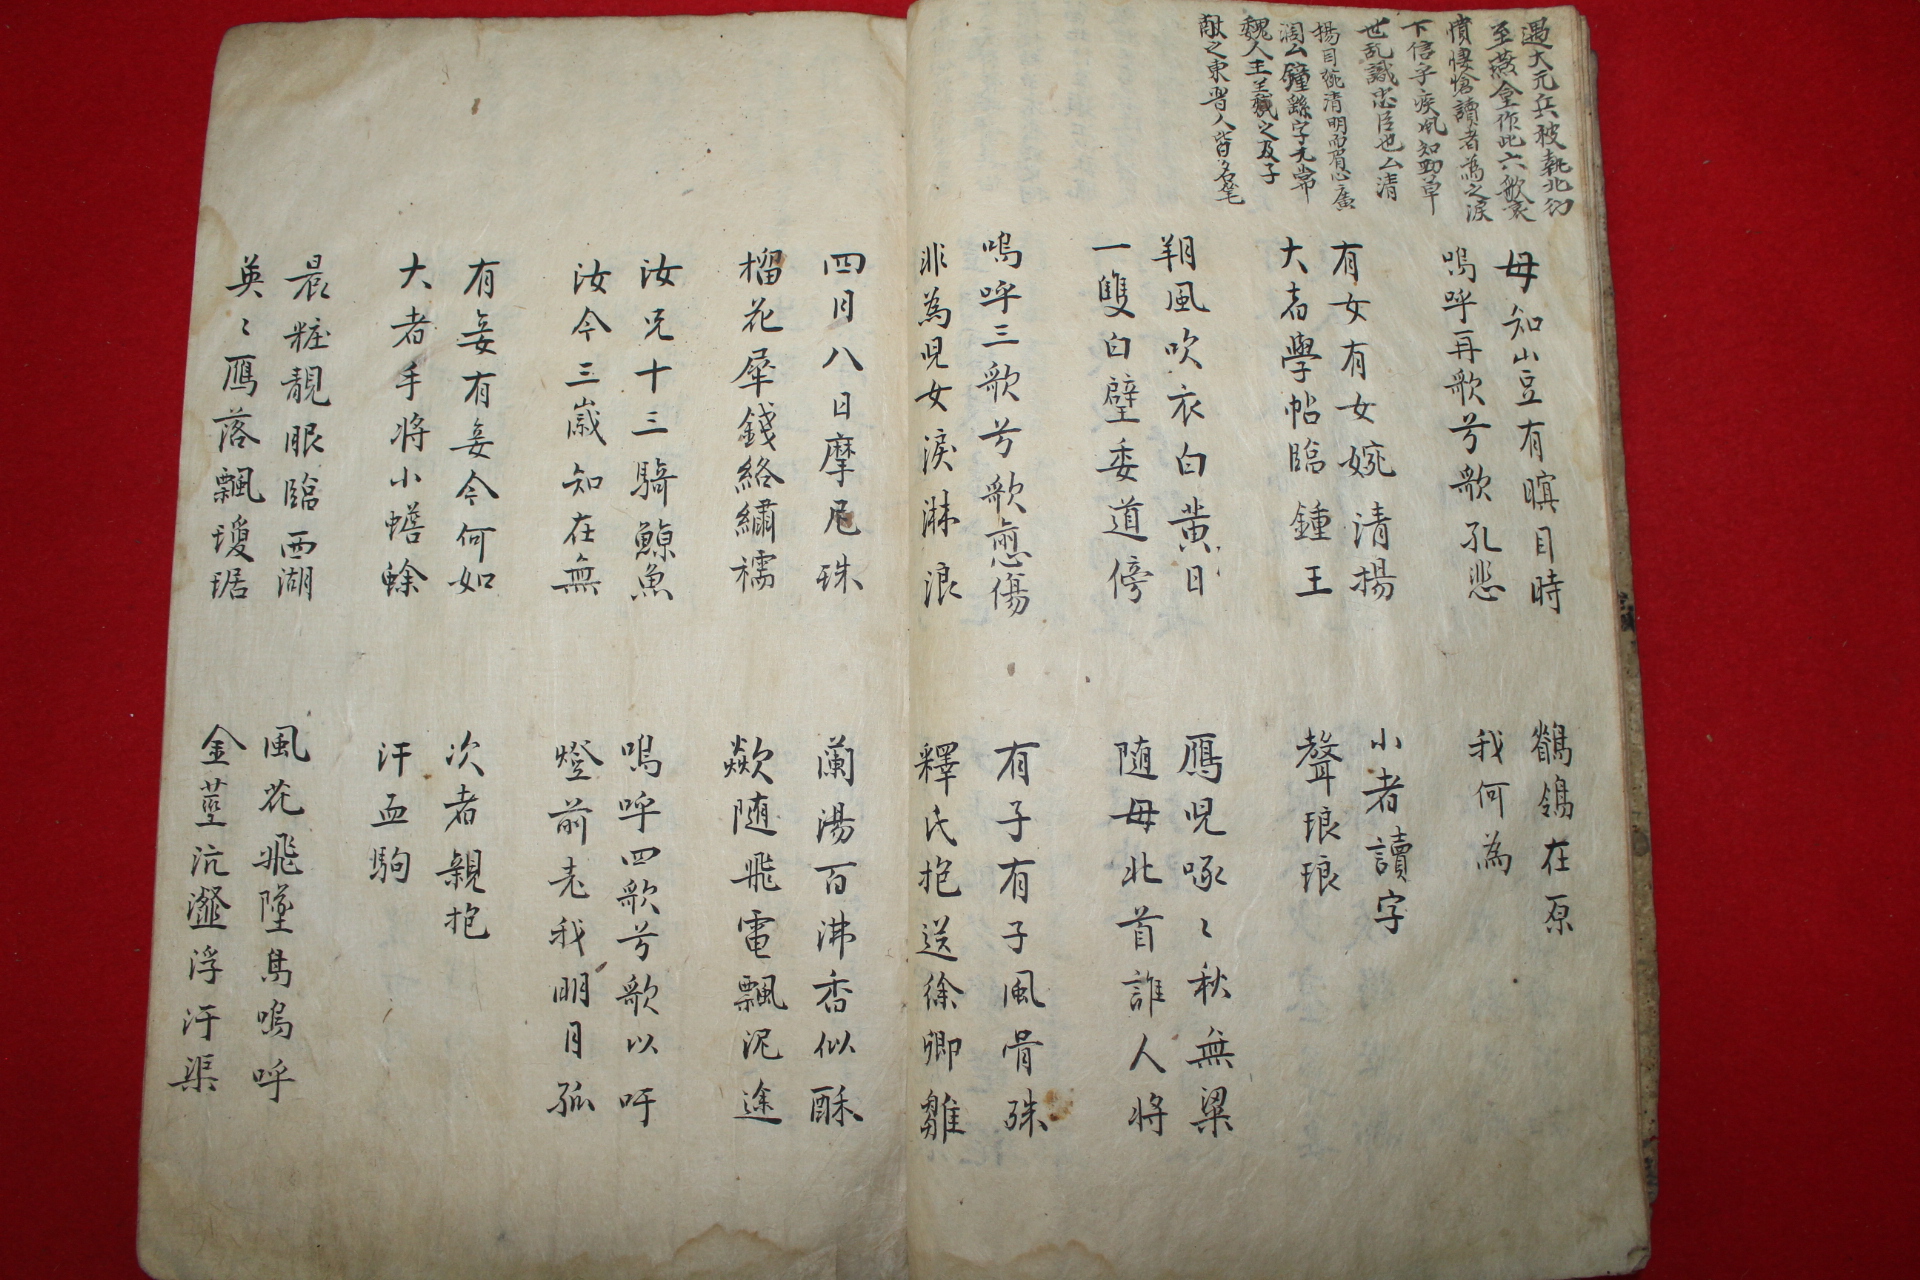 遇大元兵被執北行
至燕會作此六歌哀
憤悽愴讀者為之淚
下信乎疾風知勁草
世乱識忠臣也厶清
揚目視清明而眉心廣
濶厶鐘繇字元常
魏人王羲之及子
献之東晋人皆名笔
母知豈有瞑目時
嗚呼再歌兮歌孔悲
鶺鴒在原
我何為
有女有女婉清揚
大者學帖臨鍾王
小者讀字
聲琅琅
朔風吹衣白黃日
一雙白璧委道傍
鴈兒啄〻秋無粱
随母北首誰人将
嗚呼三歌兮歌愈傷
非為兒女淚淋浪
有子有子風骨殊
釋氏抱送徐卿雛
四月八日摩尼珠
榴花犀錢絡繡襦
蘭湯百沸香似酥
歘随飛電飄泥途
汝兄十三騎鯨魚
汝今三歲知在無
嗚呼四歌兮歌以吁
燈前老我明月孤
有妾有妾今何如
大者手将小蟾蜍
次者親抱
汗血駒
晨粧靚服臨西湖
英〻鴈落飄瓊琚
風花飛墜鳥嗚呼
金莖沆瀣浮汙渠